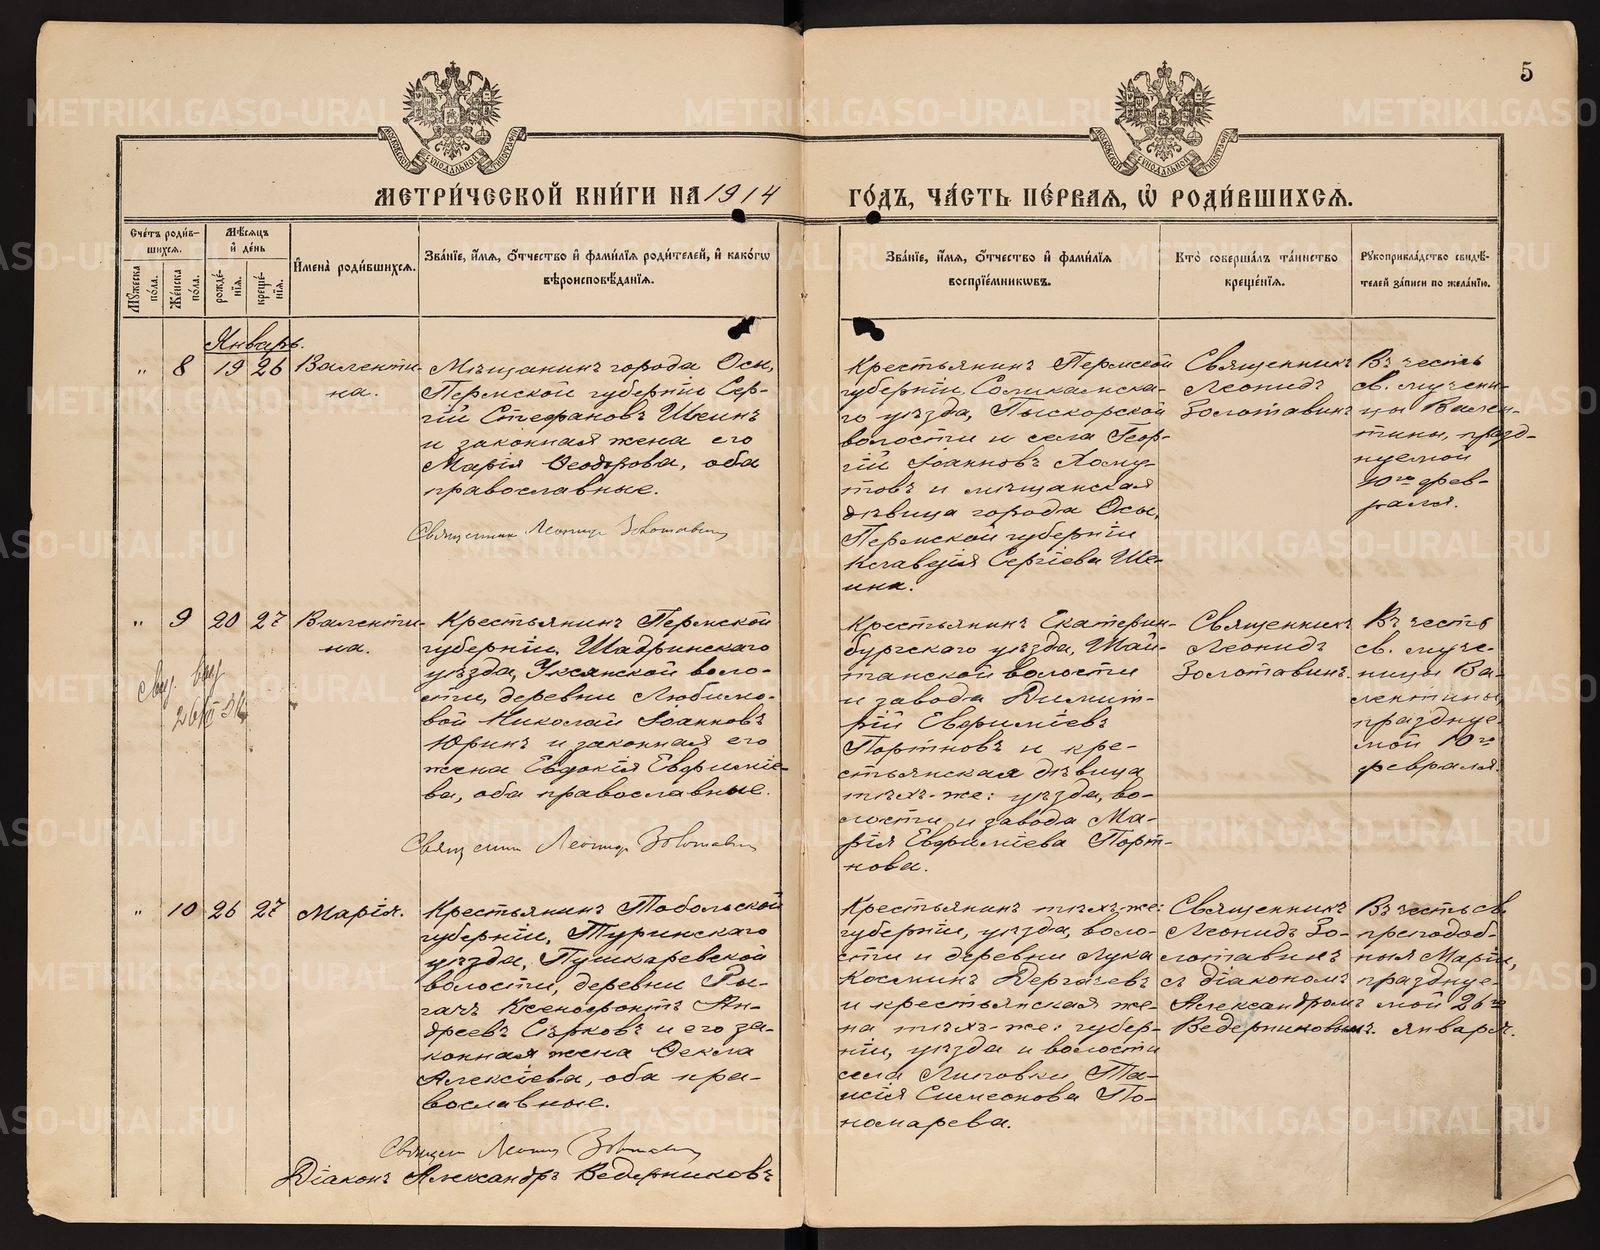 5
МОСКОВСКОЙ СѴНОДАЛЬНОЙ ТИПОГРАФІИ
МОСКОВСКОЙ СѴНОДАЛЬНОЙ ТИПОГРАФІИ
МЕТРИ́ЧЕСКОЙ КНИ́ГИ НА 1914
ГО́ДЪ, ЧА́СТЬ ПЕ́РВАѦ, Ѡ РОДИ́ВШИХСѦ.
Сче́тъ роди́в-
шихсѧ.
Мѣ́сѧцъ
и҆ де́нь
Му́жеска
по́ла.
Же́нска
по́ла.
рожде́-
нїѧ.
креще́-
нїѧ.
И҆мена̀ роди́вшихсѧ.
Зва́нїе, и҆́мѧ, ѻ҆́тчество и҆ фами́лїѧ роди́телей, и҆ како́гѡ
вѣроисповѣ́данїѧ.
Зва́нїе, и҆́мѧ, ѻ҆́тчество и҆ фами́лїѧ
воспрїе́мникѡвъ.
Кто̀ соверша́лъ та́инство
креще́нїѧ.
Рꙋкоприкла́дство свидѣ́-
телей за́писи по жела́нїю.
Январь.
" 8 19 26
Валенти-
на.
Мѣщанинъ города Осы,
Пермской губерніи Сер-
гій Стефановъ Шеинъ
и законная жена его
Марія Ѳеодорова, оба
православные.
Священник Леонид Золотавин
Крестьянинъ Пермской
губерніи, Соликамска-
го уѣзда, Пыскорской
волости и села Геор-
гій Іоанновъ Хому-
товъ и мѣщанская
дѣвица города Осы,
Пермской губерніи
Клавдія Сергіева Ше-
ина.
Священникъ
Леонидъ
Золотавинъ
Въ честь
св. мучени-
цы Вален-
тины, празд-
нуемой
10го фев-
раля.
" 9 20 27
Валенти-
на.
Крестьянинъ Пермской
губерніи, Шадринскаго
уѣзда, Уксянской воло-
сти, деревни Любимо-
вой Николай Іоанновъ
Юринъ и законная его
жена Евдокія Евфиміе-
ва, оба православные.
Священник Леонид Золотавин
Крестьянинъ Екатерин-
бургскаго уѣзда, Шай-
танской волости
и завода Димит-
рій Евфиміевъ
Портновъ и кре-
стьянская дѣвица
тѣхъ-же: уѣзда, во-
лости и завода Ма-
рія Евфиміева Порт-
нова.
Священникъ
Леонидъ
Золотавинъ.
Въ честь
св. муче-
ницы Ва-
лентины,
празднуе-
мой 10го
февраля.
" 10 26 27
Марія.
Крестьянинъ Тобольской
губерніи, Туринскаго
уѣзда, Пушкаревской
волости, деревни Ры-
гачъ Ксенофонтъ Ан-
дреевъ Сѣрковъ и его за-
конная жена Ѳекла
Алексіева, оба пра-
вославные.
Священ Леонид Золотавин
Діаконъ Александръ Ведерниковъ
Крестьянинъ тѣхъ-же:
губерніи, уѣзда, воло-
сти и деревни Лука
Косминъ Дергачевъ
и крестьянская же-
на тѣхъ-же: губер-
ніи, уѣзда и волости
села Липовки Та-
исія Симеонова По-
номарева.
Священникъ
Леонидъ Зо-
лотавинъ
съ діакономъ
Александромъ
Ведерниковымъ.
Въ честь св.
преподоб-
ныя Маріи,
празднуе-
мой 26го
января.
METRIKI.GASO-URAL.RU